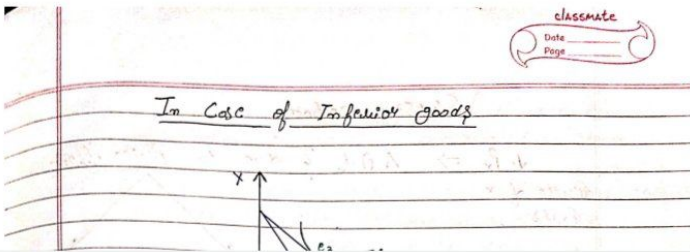 classmate
Date
Page
In Case of Inferior goods
Y
e2